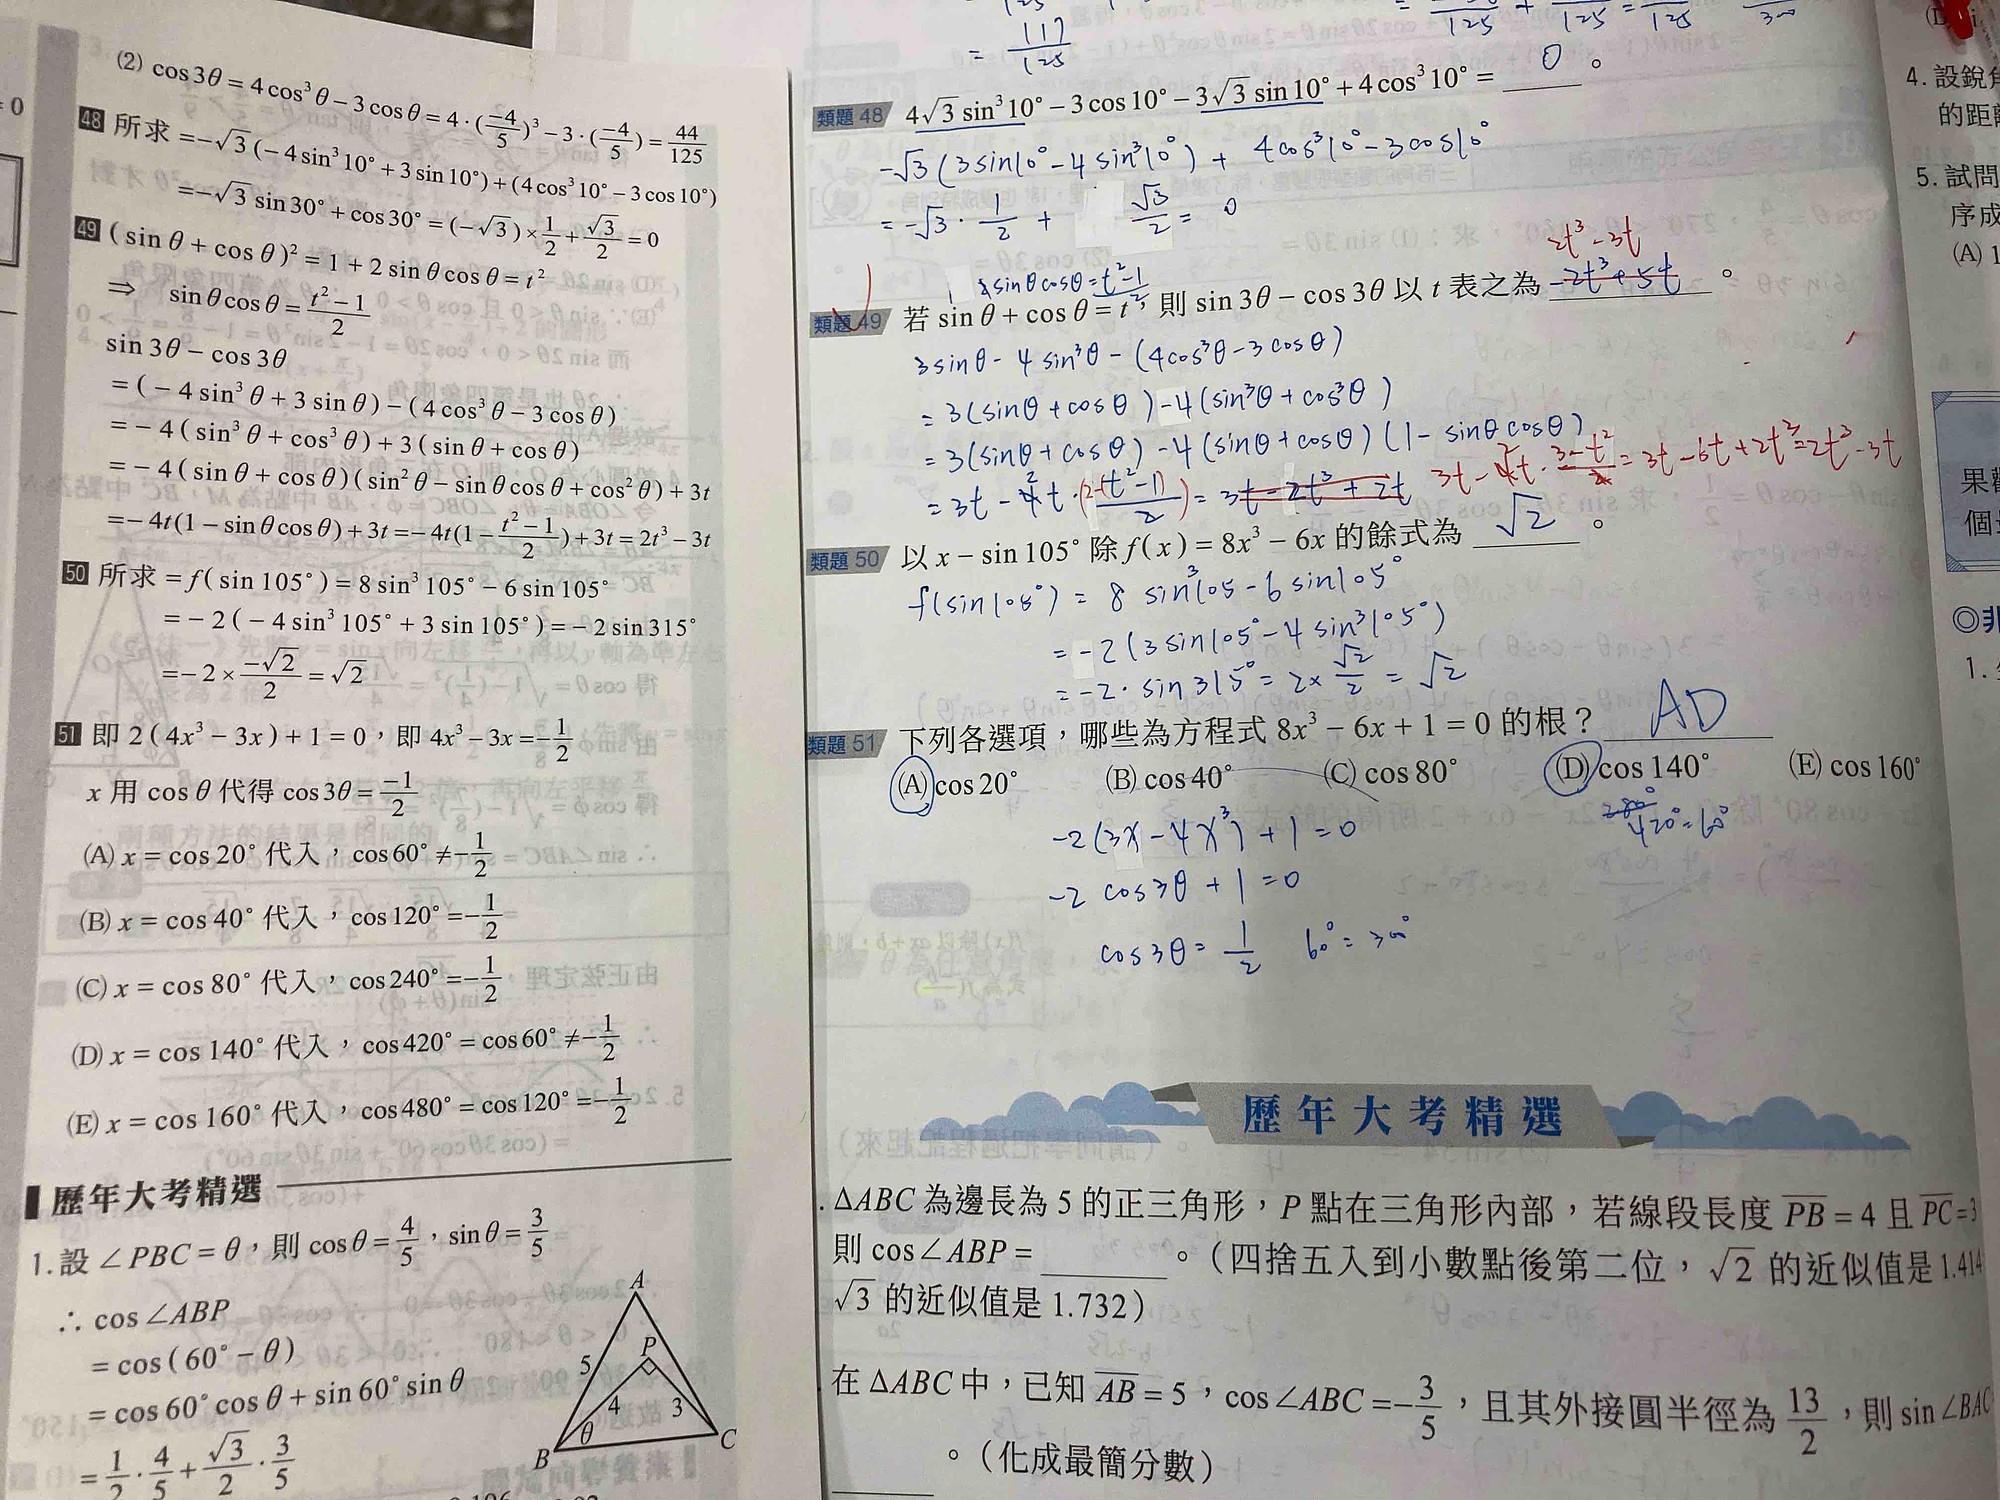 (2) cos3θ = 4cos³θ − 3cosθ = 4 · (−4/5)³ − 3 · (−4/5) = 44/125
48 所求 = −√3 (−4sin³10° + 3sin10°) + (4cos³10° − 3cos10°)
= −√3 sin30° + cos30° = (−√3) × 1/2 + √3/2 = 0
49 (sinθ + cosθ)² = 1 + 2sinθcosθ = t²
⇒ sinθcosθ = (t² − 1)/2
sin3θ − cos3θ
= (−4sin³θ + 3sinθ) − (4cos³θ − 3cosθ)
= −4(sin³θ + cos³θ) + 3(sinθ + cosθ)
= −4(sinθ + cosθ)(sin²θ − sinθcosθ + cos²θ) + 3t
= −4t(1 − sinθcosθ) + 3t = −4t(1 − (t² − 1)/2) + 3t = 2t³ − 3t
50 所求 = f(sin105°) = 8sin³105° − 6sin105°
= −2(−4sin³105° + 3sin105°) = −2sin315°
= −2 × −√2/2 = √2
51 即 2(4x³ − 3x) + 1 = 0，即 4x³ − 3x = −1/2
x 用 cosθ 代得 cos3θ = −1/2
(A) x = cos20° 代入，cos60° ≠ −1/2
(B) x = cos40° 代入，cos120° = −1/2
(C) x = cos80° 代入，cos240° = −1/2
(D) x = cos140° 代入，cos420° = cos60° ≠ −1/2
(E) x = cos160° 代入，cos480° = cos120° = −1/2
歷年大考精選
1. 設 ∠PBC = θ，則 cosθ = 4/5，sinθ = 3/5
∴ cos∠ABP
= cos(60° − θ)
= cos60°cosθ + sin60°sinθ
= 1/2 · 4/5 + √3/2 · 3/5
A
P
5
4
3
θ
B
C
= 117/125
類題 48 4√3 sin³10° − 3cos10° − 3√3 sin10° + 4cos³10° = 0 。
−√3 (3sin10° − 4sin³10°) + 4cos³10° − 3cos10°
= −√3 · 1/2 + √3/2 = 0
2t³ − 3t
sinθcosθ = (t² − 1)/2
類題 49 若 sinθ + cosθ = t，則 sin3θ − cos3θ 以 t 表之為 −2t³ + 5t 。
3sinθ − 4sin³θ − (4cos³θ − 3cosθ)
= 3(sinθ + cosθ) − 4(sin³θ + cos³θ)
= 3(sinθ + cosθ) − 4(sinθ + cosθ)(1 − sinθcosθ)
= 3t − 4t · (2−(t² − 1))/2 = 3t − 2t³ + 2t 3t − 4t · (3 − t²)/2 = 3t − 6t + 2t³ = 2t³ − 3t
類題 50 以 x − sin105° 除 f(x) = 8x³ − 6x 的餘式為 √2 。
f(sin105°) = 8 sin³105 − 6sin105°
= −2(3sin105° − 4sin³105°)
= −2 · sin315° = 2 × √2/2 = √2
類題 51 下列各選項，哪些為方程式 8x³ − 6x + 1 = 0 的根？ AD
(A) cos20° (B) cos40° (C) cos80° (D) cos140° (E) cos160°
420° = 60°
−2(3x − 4x³) + 1 = 0
−2 cos3θ + 1 = 0
cos3θ = 1/2 60° = 300°
歷年大考精選
. ΔABC 為邊長為 5 的正三角形，P 點在三角形內部，若線段長度 PB = 4 且 PC = 3
則 cos∠ABP = 。（四捨五入到小數點後第二位，√2 的近似值是 1.414
√3 的近似值是 1.732）
. 在 ΔABC 中，已知 AB = 5，cos∠ABC = −3/5，且其外接圓半徑為 13/2，則 sin∠BAC
。（化成最簡分數）
4. 設銳角
的距離
5. 試問
序成
(A) 1
果
個
◎非
1.